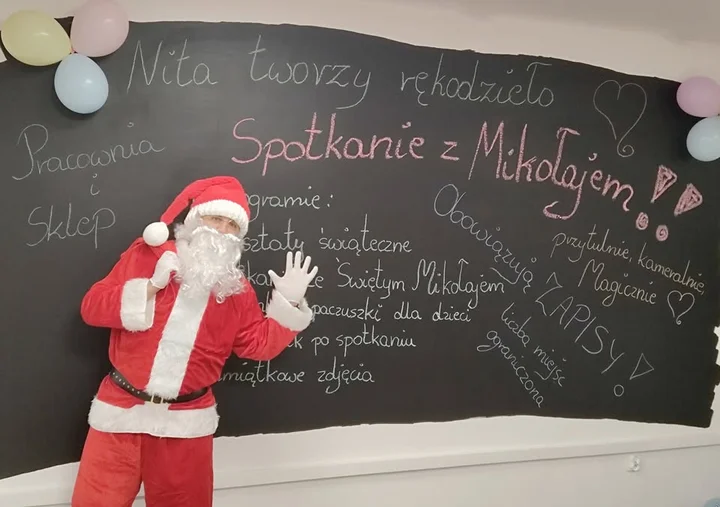 Nita tworzy rękodzieło
Pracownia
i
Sklep
Spotkanie z Mikołajem!!
ogramie:
sztaty świąteczne
Świętym Mikołajem
paczuszki dla dzieci
po spotkaniu
miątkowe zdjęcia
Obowiązują
ZAPISY!
liczba miejsc
ograniczona
przytulnie, kameralnie
Magicznie